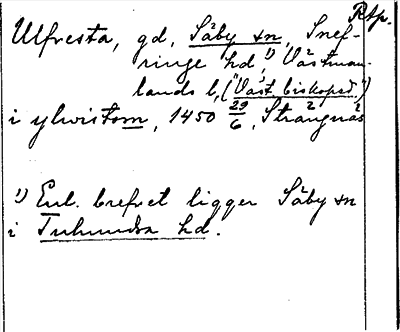 Rtp.
Ulfresta, gd, Säby sn, Snef-
ringe hd ¹), Västman-
lands l, ("Väst. biskopsd.")
i ylwistom, 1450 29/6, Strängnäs
¹) Enl. brefvet ligger Säby sn
i Tuhundra hd.